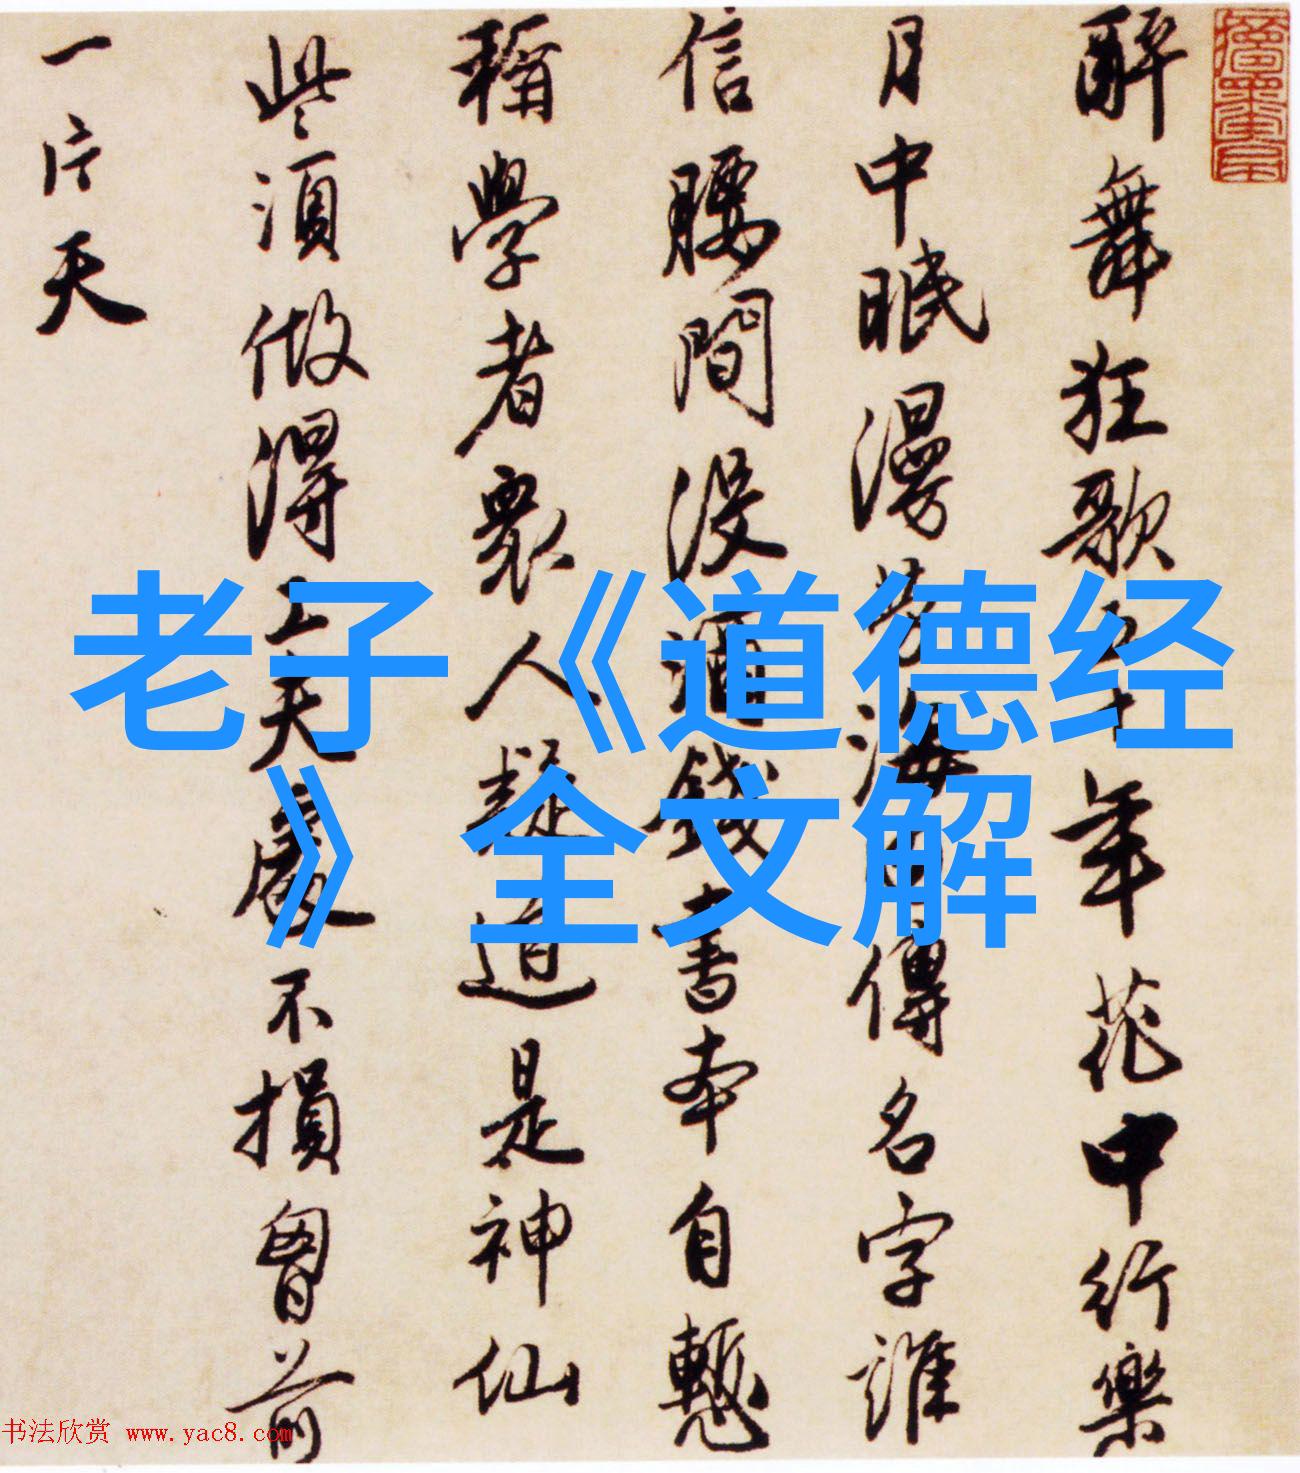 醉舞狂歌五十年花中行樂
月中眠漫勞海內傳名字誰
信腰間沒酒錢書本自慙
稱學者衆人疑道是神仙
些須做得工夫處不損胷前
一片天
老子《道德经
》全文解
书法欣赏 www.yac8.com